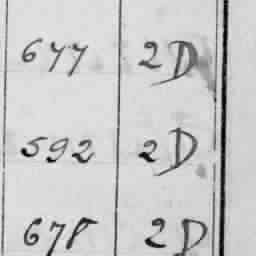 677 2D
592 2D
678 2D